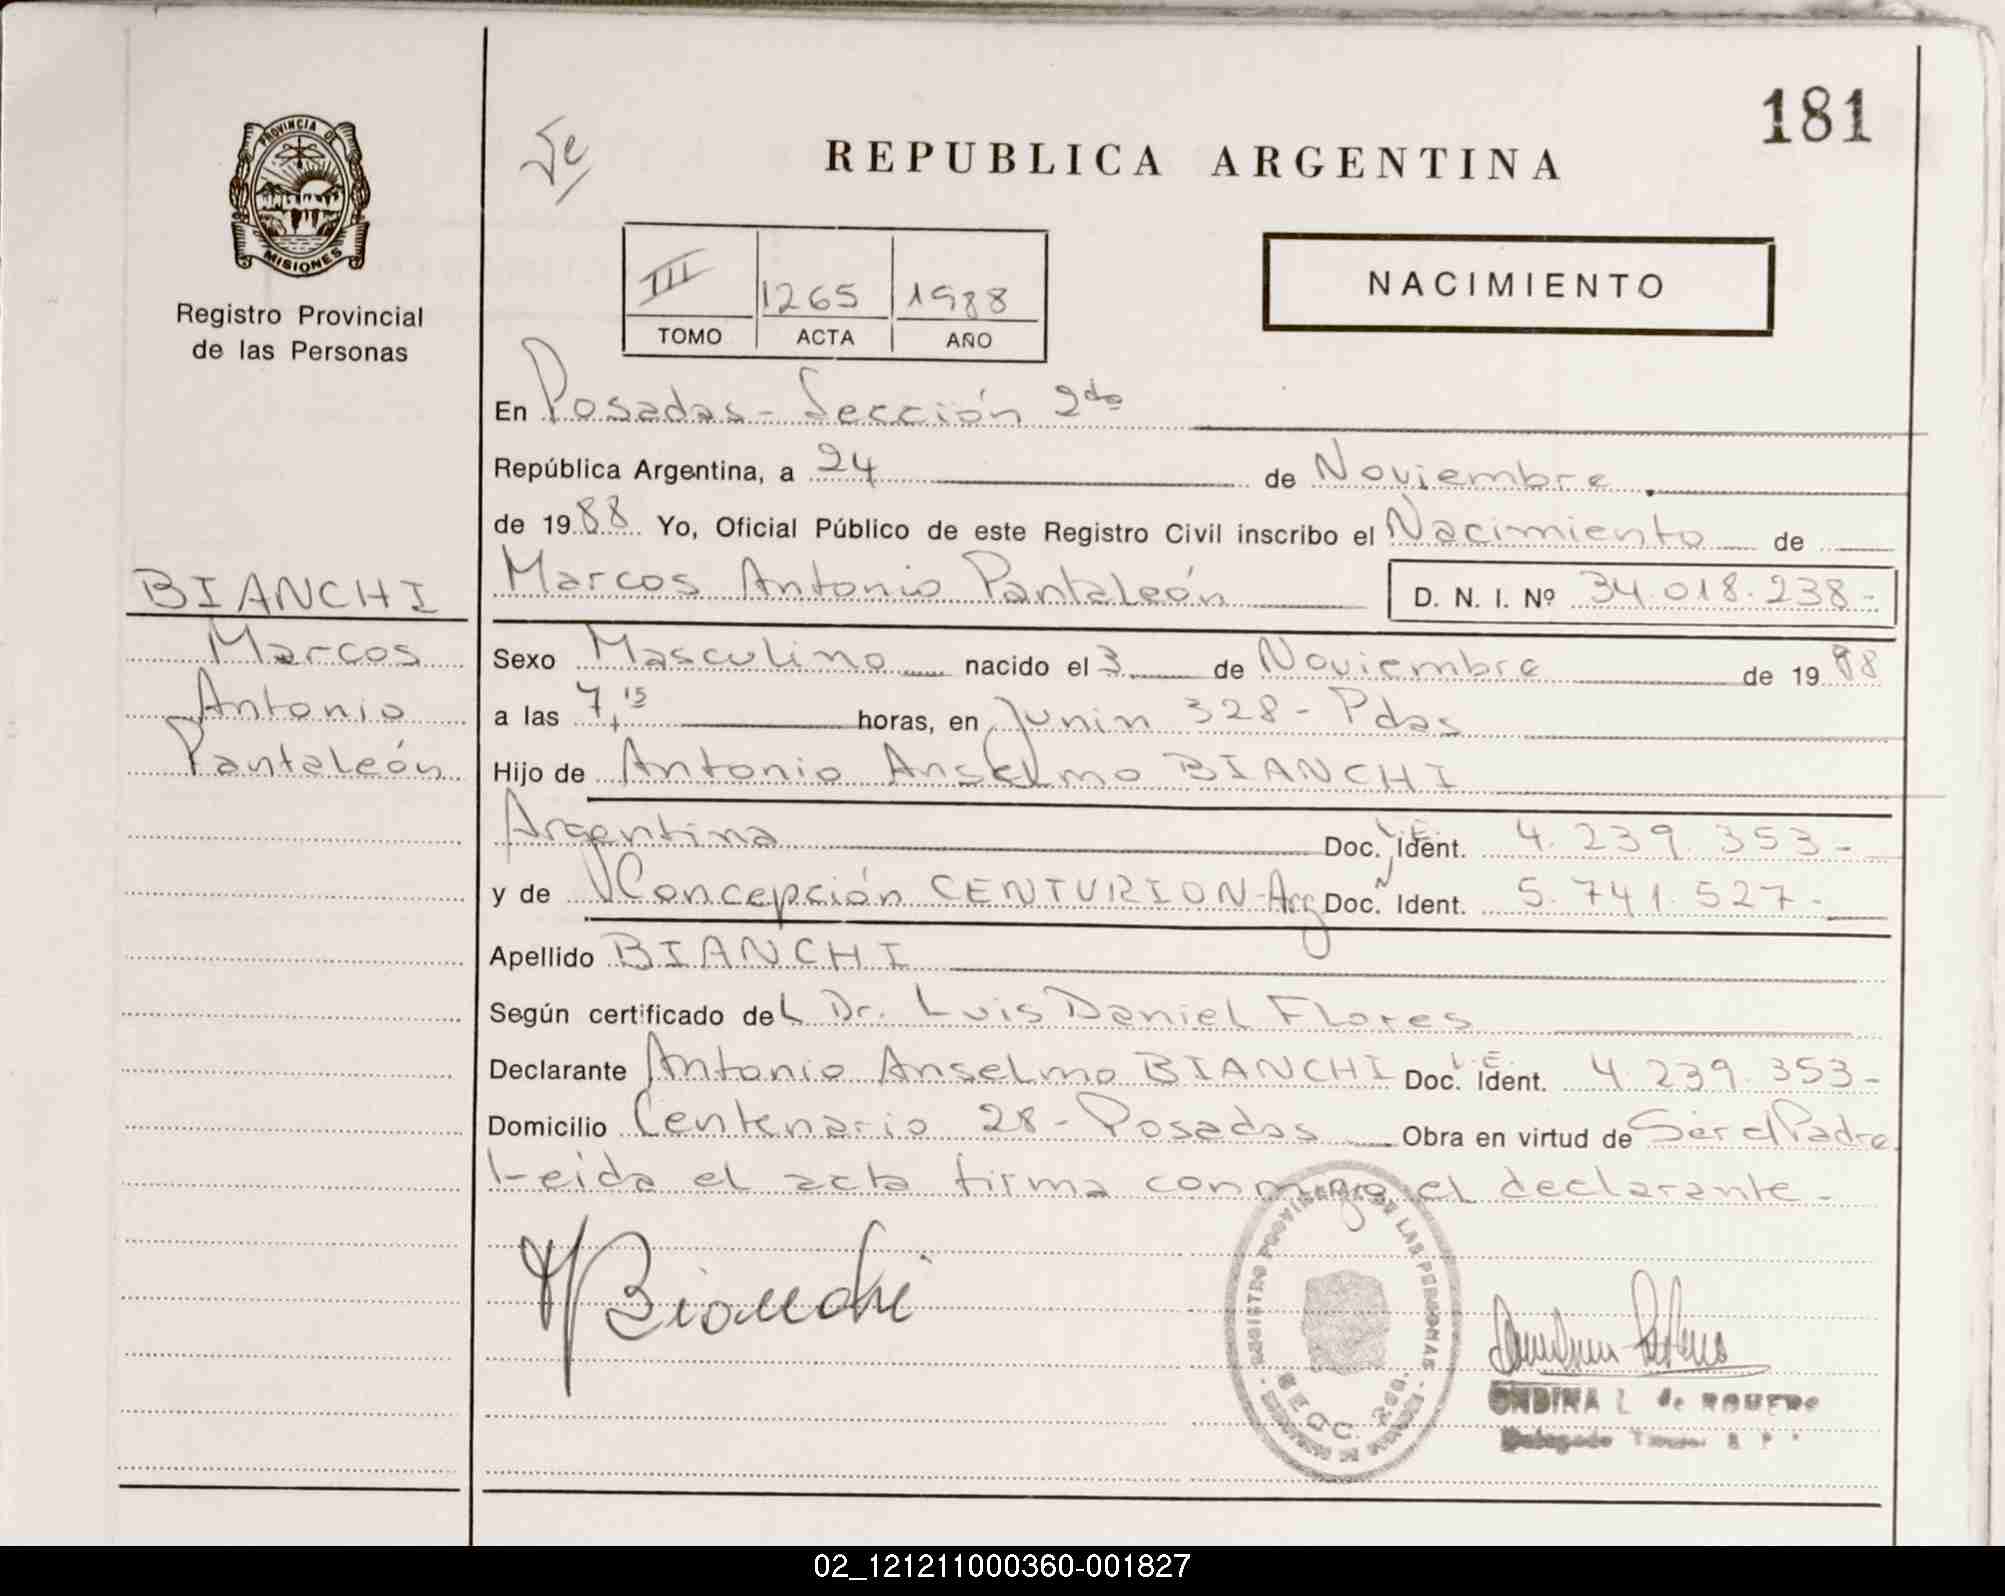 181
PROVINCIA DE
MISIONES
Registro Provincial
de las Personas
REPUBLICA ARGENTINA
NACIMIENTO
III 1265 1988
TOMO ACTA AÑO
En Posadas - Sección 2da
República Argentina, a 24 de Noviembre
de 1988 Yo, Oficial Público de este Registro Civil inscribo el Nacimiento de
BIANCHI
Marcos
Antonio
Pantaleón
Marcos Antonio Pantaleón D. N. I. Nº 34.018.238-
Sexo Masculino nacido el 3 de Noviembre de 1988
a las 7,15 horas, en Junin 328 - Pdas
Hijo de Antonio Anselmo BIANCHI
Argentina Doc. Ident. L.E. 4.239.353-
y de Concepción CENTURION - Arg Doc. Ident. 5.741.527-
Apellido BIANCHI
Según certificado del Dr. Luis Daniel Flores
Declarante Antonio Anselmo BIANCHI Doc. Ident. L.E. 4.239.353-
Domicilio Centenario 28 - Posadas Obra en virtud de Ser el Padre
Leida el acta firma conmigo el declarante -
Bianchi
REGISTRO PROVINCIAL DE LAS PERSONAS
SECC. 2da
ONDINA L. de ROMERO
02_121211000360-001827